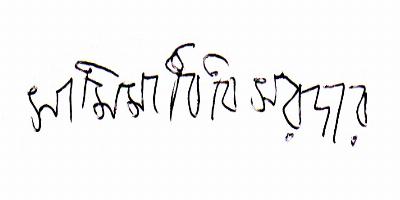 সামিমা বিবি সরদার